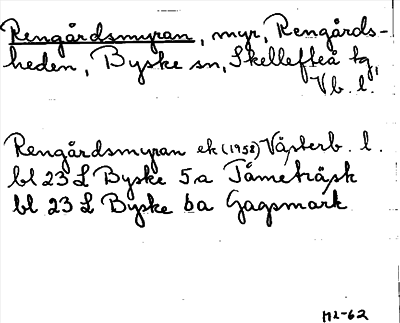 Rengårdsmyran, myr, Rengårds-
heden, Byske sn, Skellefteå tg,
Vb. l.
Rengårdsmyran ek (1958) Västerb. l.
bl 23 L Byske 5a Tåmeträsk
bl 23 L Byske 6a Gagsmark
M2-62